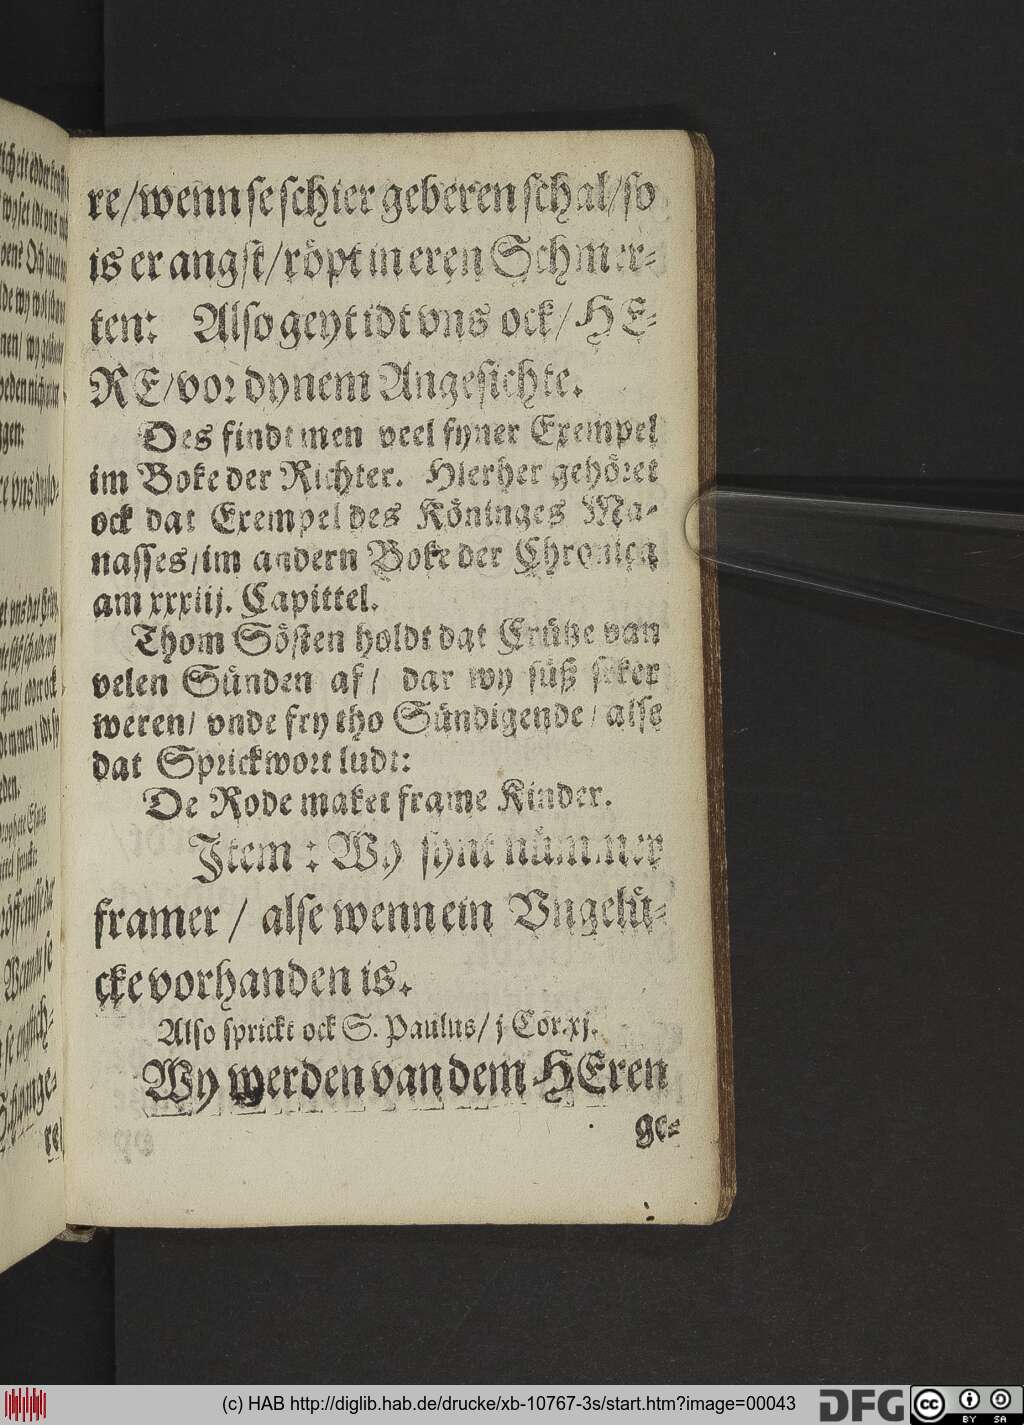 re/wenn se schier geberen schal/so
is er angst/röpt in eren Schmer-
ten: Also geyt idt vns ock/HE-
RE/vor dynem Angesichte.
Des findt men veel fyner Exempel
im Boke der Richter. Hierher gehöret
ock dat Exempel des Köninges Ma-
nasses/im andern Boke der Chronica
am xxxiij. Capittel.
Thom Sösten holdt dat Crütze van
velen Sünden af/ dar wy süß seker
weren/ vnde fry tho Sündigende/ alse
dat Sprickwort ludt:
De Rode maket frame Kinder.
Item: Wy synt nümmer
framer/ alse wenn ein Vngelü-
cke vorhanden is.
Also sprickt ock S. Paulus/ j Cor.xj.
Wy werden van dem HEren
ge-
(c) HAB http://diglib.hab.de/drucke/xb-10767-3s/start.htm?image=00043
DFG
cc BY SA